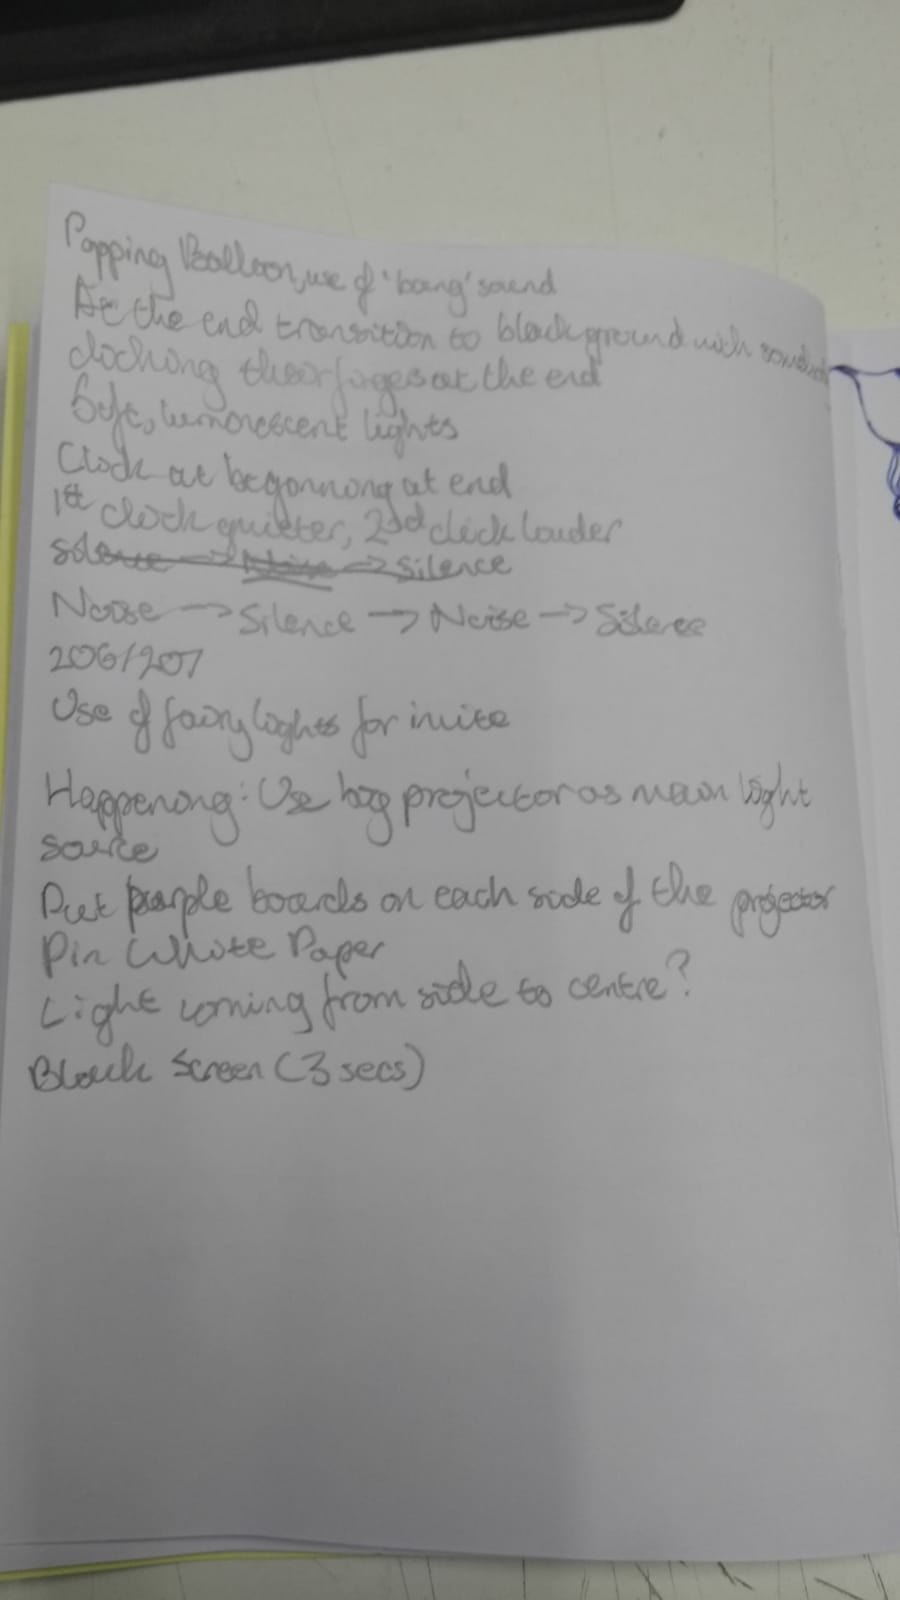 Popping Balloon, use of 'bang' sound
At the end transition to black ground with
clicking their at the end
Soft, lumorescent lights
Clock at beginning at end
1st clock quieter, 2nd click louder
Silence -> Noise -> Silence
Noise -> Silence -> Noise -> Silence
206/207
Use of fairy lights for invite
Happening: Use big projector as main light
source
Put purple boards on each side of the projector
Pin White Paper
Light coming from side to centre?
Black Screen (3 secs)